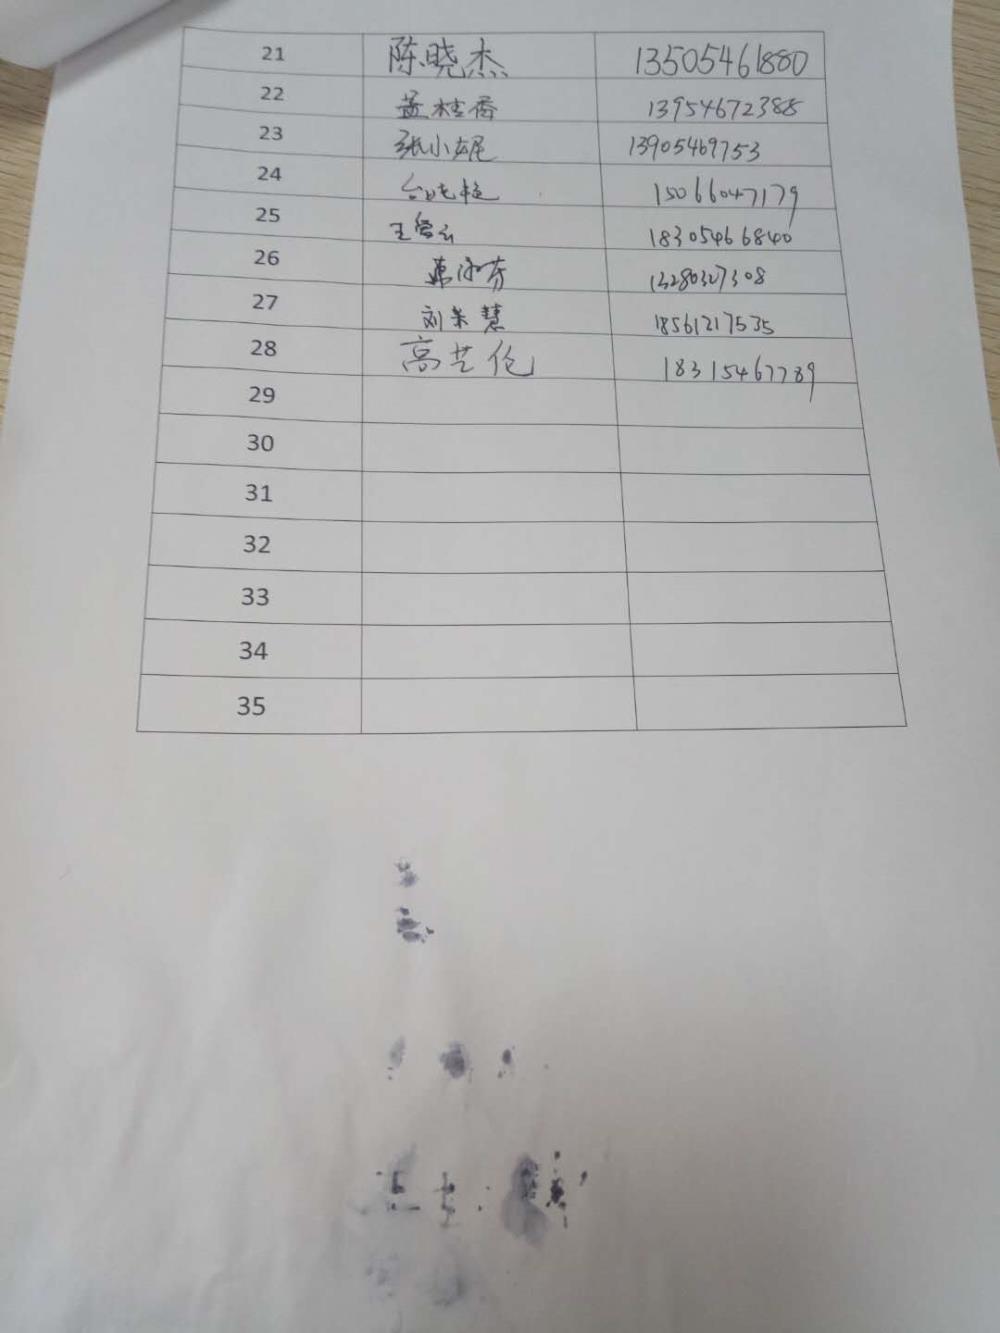 21 陈晓杰 13505461880
22 孟桂香 13954672388
23 张小妮 13905469753
24 15066047179
25 王 18305466840
26 芬 13280327308
27 刘 慧 18561217535
28 高艺伦 18315467789
29
30
31
32
33
34
35